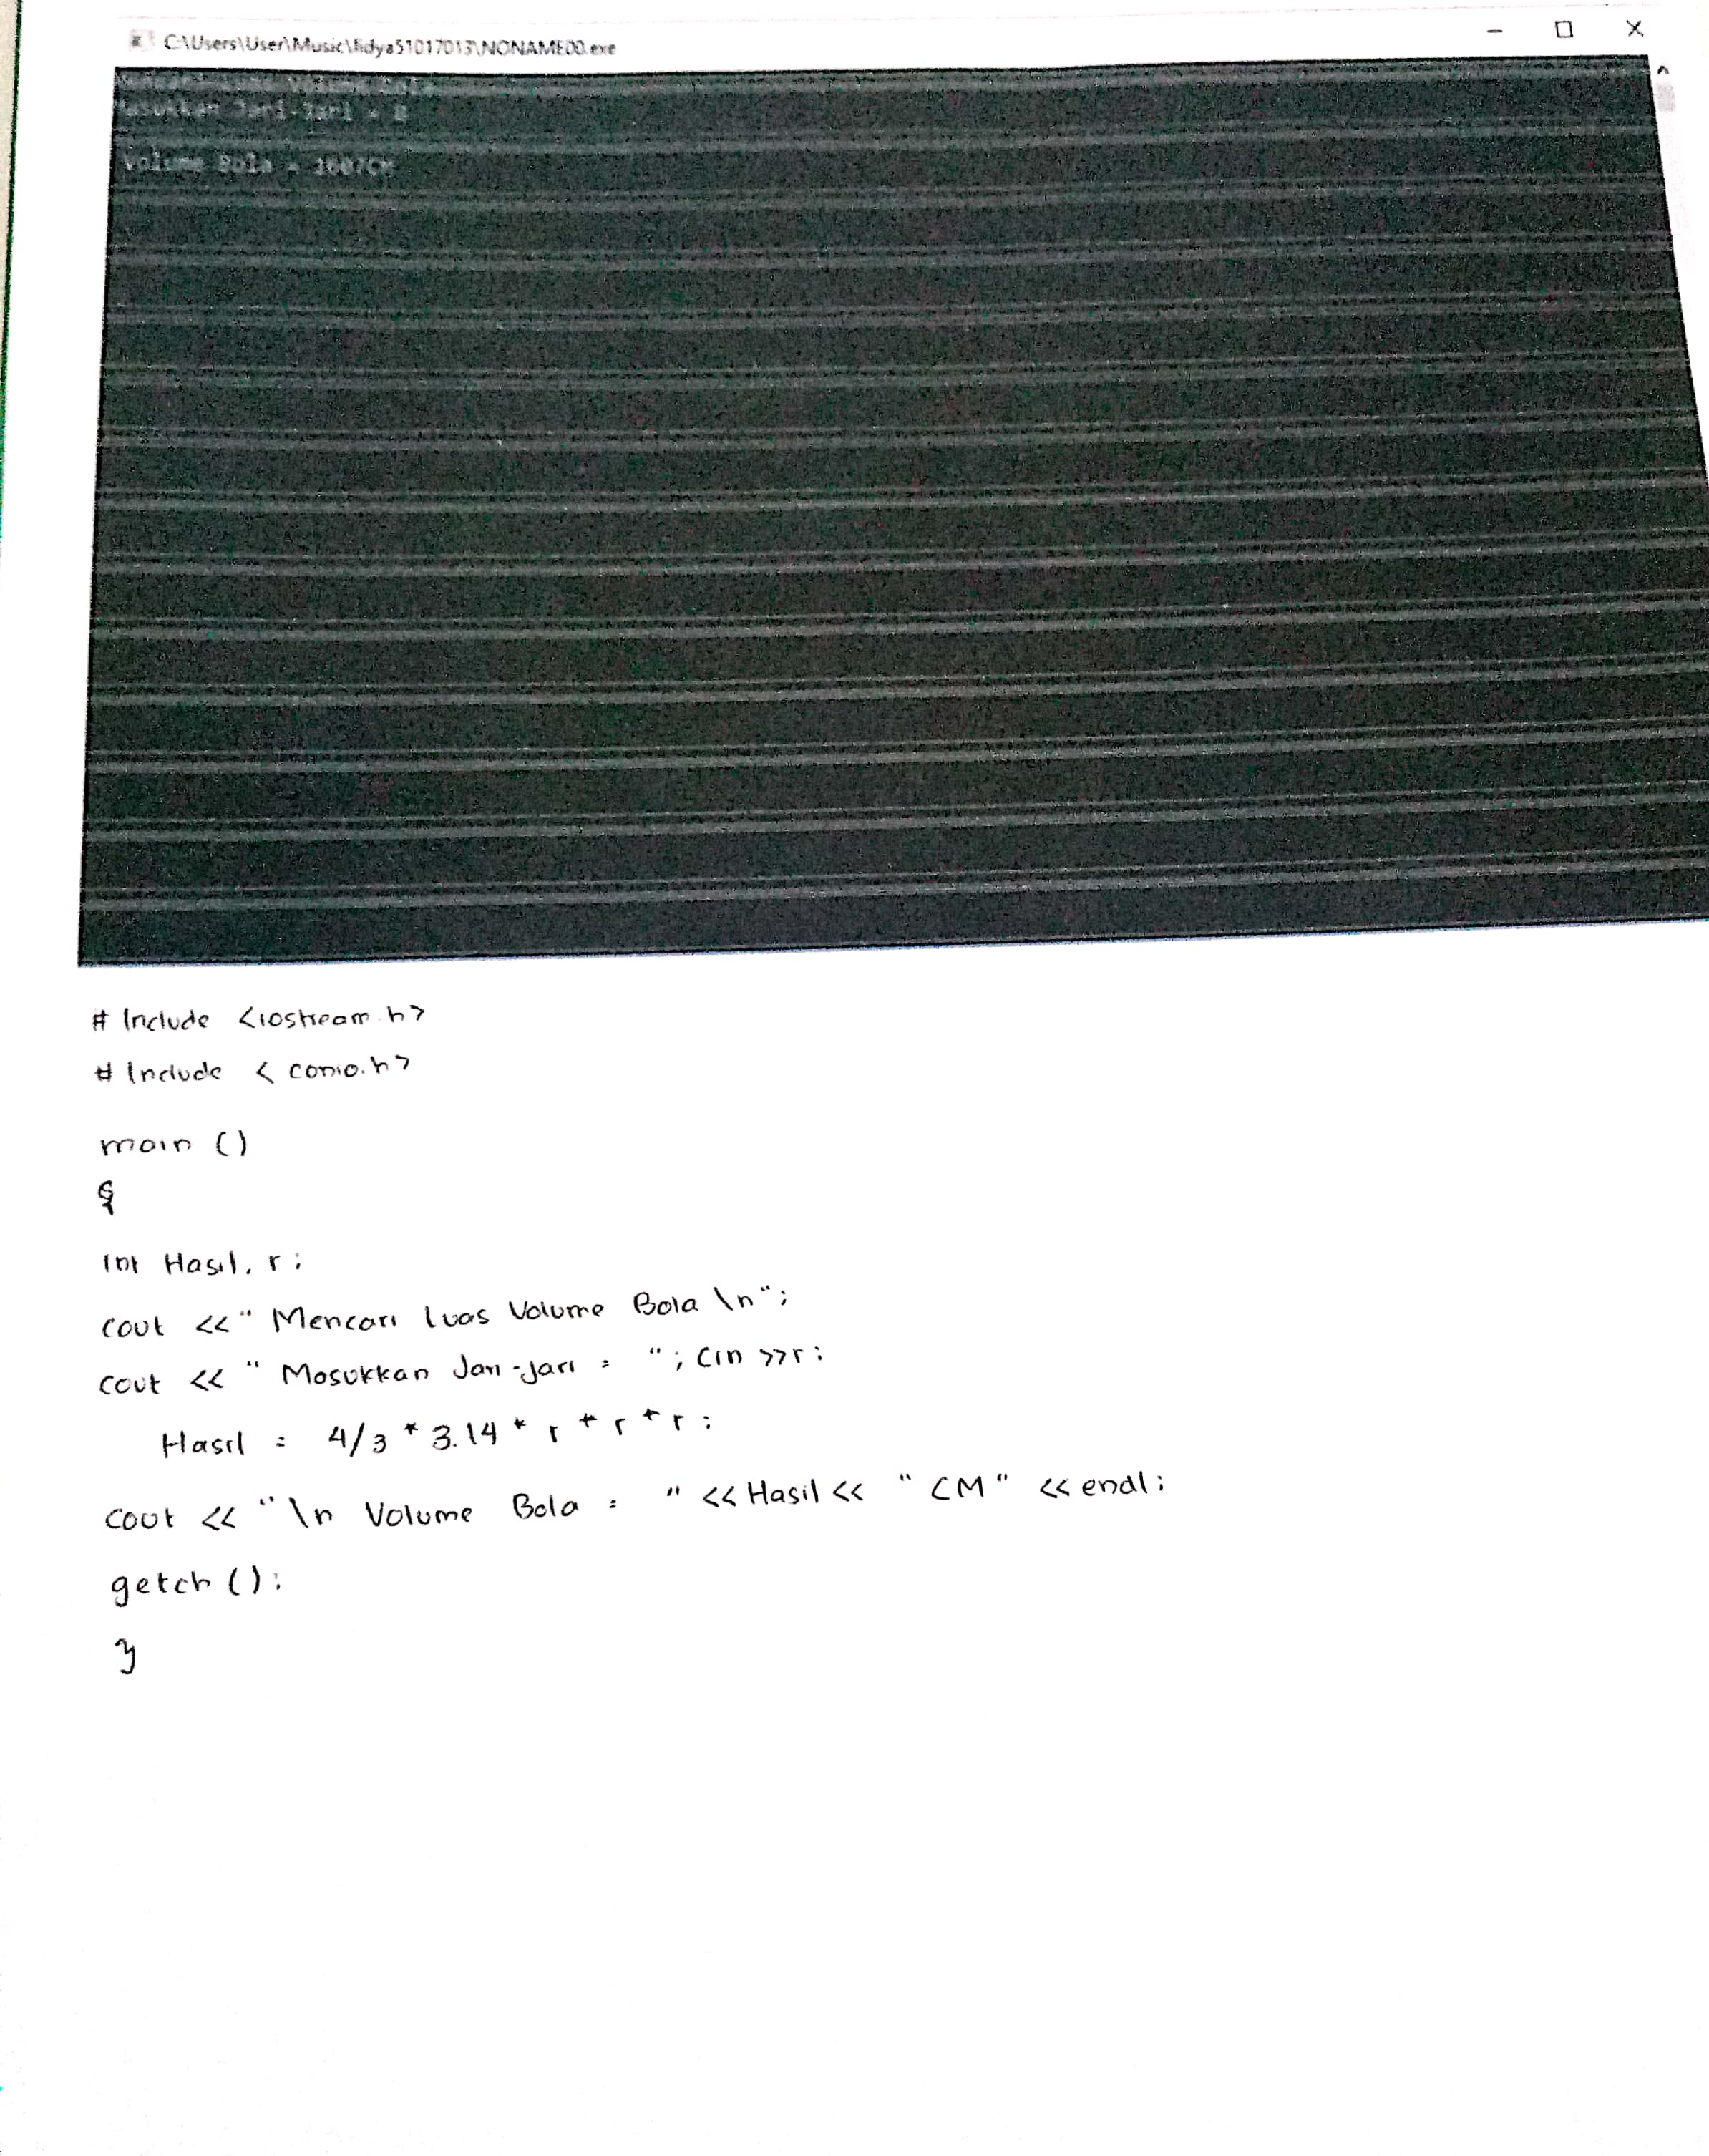 C:\Users\User\Music\fidya51017013\NONAME00.exe
Masukkan Jari-Jari = 8
Volume Bola = 1607CM
# Include <iostream.h>
# Include < conio.h>
main ()
{
Int Hasil, r;
cout <<" Mencari luas Volume Bola \n";
cout << " Masukkan Jari-jari = "; Cin >>r;
Hasil = 4/3 * 3.14 * r * r * r;
cout << "\n Volume Bola = " << Hasil << " CM" << endl;
getch ();
}